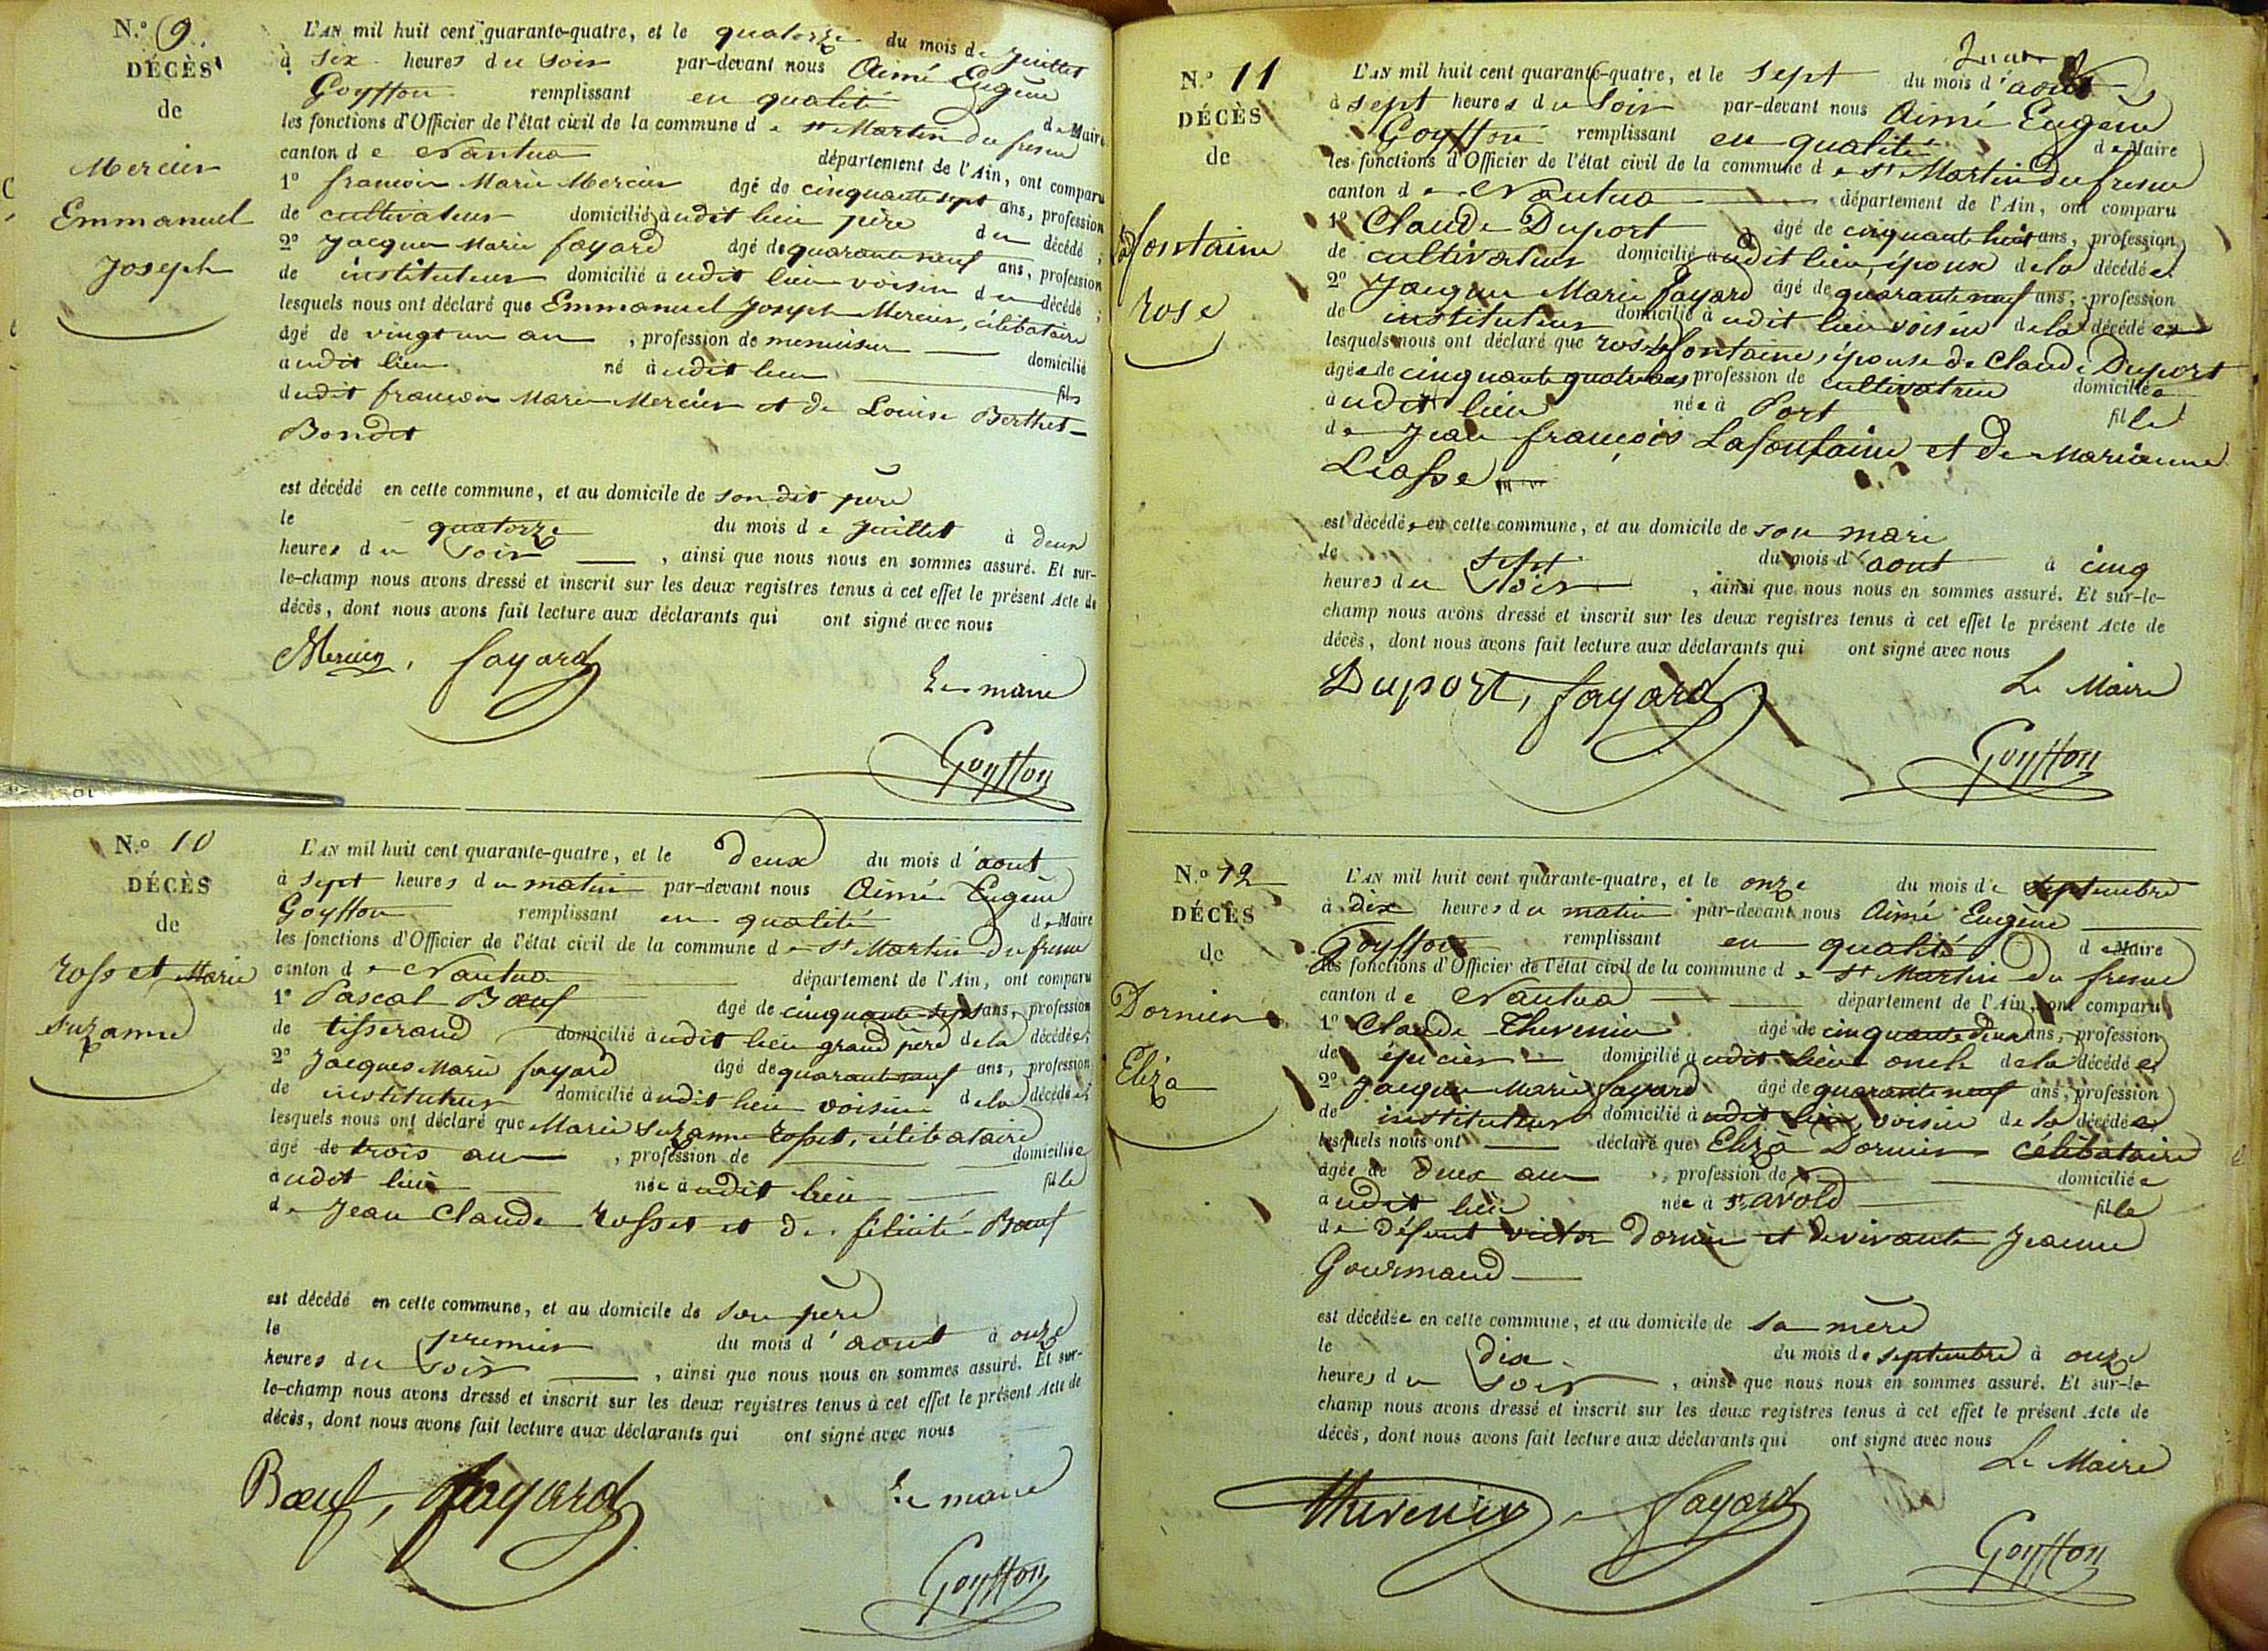 N.º 9.
DÉCÈS
de
Mercier
Emmanuel
Joseph
L'AN mil huit cent quarante-quatre, et le quatorze du mois de Juillet
à six heures du soir par-devant nous Aimé Eugène
Goyffon remplissant en qualité de Maire
les fonctions d'Officier de l'état civil de la commune de St Martin du fresne
canton de Nantua département de l'Ain, ont comparu
1º françois Marie Mercier âgé de cinquante sept ans, profession
de cultivateur domicilié audit lieu père du décédé ;
2º Jacques Marie fayard âgé de quarante neuf ans, profession
de instituteur domicilié audit lieu voisin du décédé ;
lesquels nous ont déclaré que Emmanuel Joseph Mercier, célibataire
âgé de vingt un ans , profession de menuisier domicilié
audit lieu né audit lieu fils
dudit françois Marie Mercier et de Louise Berthet-
Bondet
est décédé en cette commune, et au domicile de son dit père
le quatorze du mois de Juillet à deux
heures du soir , ainsi que nous nous en sommes assuré. Et sur-
le-champ nous avons dressé et inscrit sur les deux registres tenus à cet effet le présent Acte de
décès, dont nous avons fait lecture aux déclarants qui ont signé avec nous
Mercier, fayard
Le maire
Goyffon
N.º 10
DÉCÈS
de
rosset Marie
suzanne
L'AN mil huit cent quarante-quatre, et le deux du mois d'aout
à sept heures du matin par-devant nous Aimé Eugène
Goyffon remplissant en qualité de Maire
les fonctions d'Officier de l'état civil de la commune de St Martin du fresne
canton de Nantua département de l'Ain, ont comparu
1º Pascal Bœuf âgé de cinquante sept ans, profession
de tisserand domicilié audit lieu grand père de la décédée;
2º Jacques Marie fayard âgé de quarante neuf ans, profession
de instituteur domicilié audit lieu voisin de la décédée;
lesquels nous ont déclaré que Marie suzanne rosset, célibataire
âgé de trois ans , profession de domiciliée
audit lieu née audit lieu fille
de Jean Claude rosset et de félicité Bœuf
est décédé en cette commune, et au domicile de son père
le premier du mois d'aout à onze
heures du soir , ainsi que nous nous en sommes assuré. Et sur-
le-champ nous avons dressé et inscrit sur les deux registres tenus à cet effet le présent Acte de
décès, dont nous avons fait lecture aux déclarants qui ont signé avec nous
Bœuf, fayard
Le maire
Goyffon
N.º 11
DÉCÈS
de
Lafontaine
rose
L'AN mil huit cent quarante-quatre, et le sept du mois d'aout
à sept heures du soir par-devant nous Aimé Eugène
Goyffon remplissant en qualité de Maire
les fonctions d'Officier de l'état civil de la commune de St Martin du fresne
canton de Nantua département de l'Ain, ont comparu
1º Claude Duport âgé de cinquante huit ans, profession
de cultivateur domicilié audit lieu, époux de la décédée
2º Jacques Marie fayard âgé de quarante neuf ans, profession
de instituteur domicilié audit lieu voisin de la décédée
lesquels nous ont déclaré que rose Lafontaine, épouse de Claude Duport
âgée de cinquante quatre ans profession de cultivatrice domiciliée
audit lieu née à Port fille
de Jean françois Lafontaine et de Marianne
Liasse
est décédée en cette commune, et au domicile de son mari
le sept du mois d'aout à cinq
heures du soir , ainsi que nous nous en sommes assuré. Et sur-le-
champ nous avons dressé et inscrit sur les deux registres tenus à cet effet le présent Acte de
décès, dont nous avons fait lecture aux déclarants qui ont signé avec nous
Duport, fayard
Le Maire
Goyffon
N.º 12
DÉCÈS
de
Dornier
Eliza
L'AN mil huit cent quarante-quatre, et le onze du mois de septembre
à dix heures du matin par-devant nous Aimé Eugène
Goyffon remplissant en qualité de Maire
les fonctions d'Officier de l'état civil de la commune de St Martin du fresne
canton de Nantua département de l'Ain, ont comparu
1º Claude Thevenin âgé de cinquante deux ans, profession
de épicier domicilié audit lieu oncle de la décédée
2º Jacques Marie fayard âgé de quarante neuf ans, profession
de instituteur domicilié audit lieu, voisin de la décédée
lesquels nous ont déclaré que Eliza Dornier célibataire
âgée de deux ans , profession de domiciliée
audit lieu née à St avold fille
de défunt victor Dornier et de vivante Jeanne
Gourmand
est décédée en cette commune, et au domicile de sa mère
le dix du mois de septembre à onze
heures du soir , ainsi que nous nous en sommes assuré. Et sur-le-
champ nous avons dressé et inscrit sur les deux registres tenus à cet effet le présent Acte de
décès, dont nous avons fait lecture aux déclarants qui ont signé avec nous
Le Maire
thevenin, fayard
Goyffon